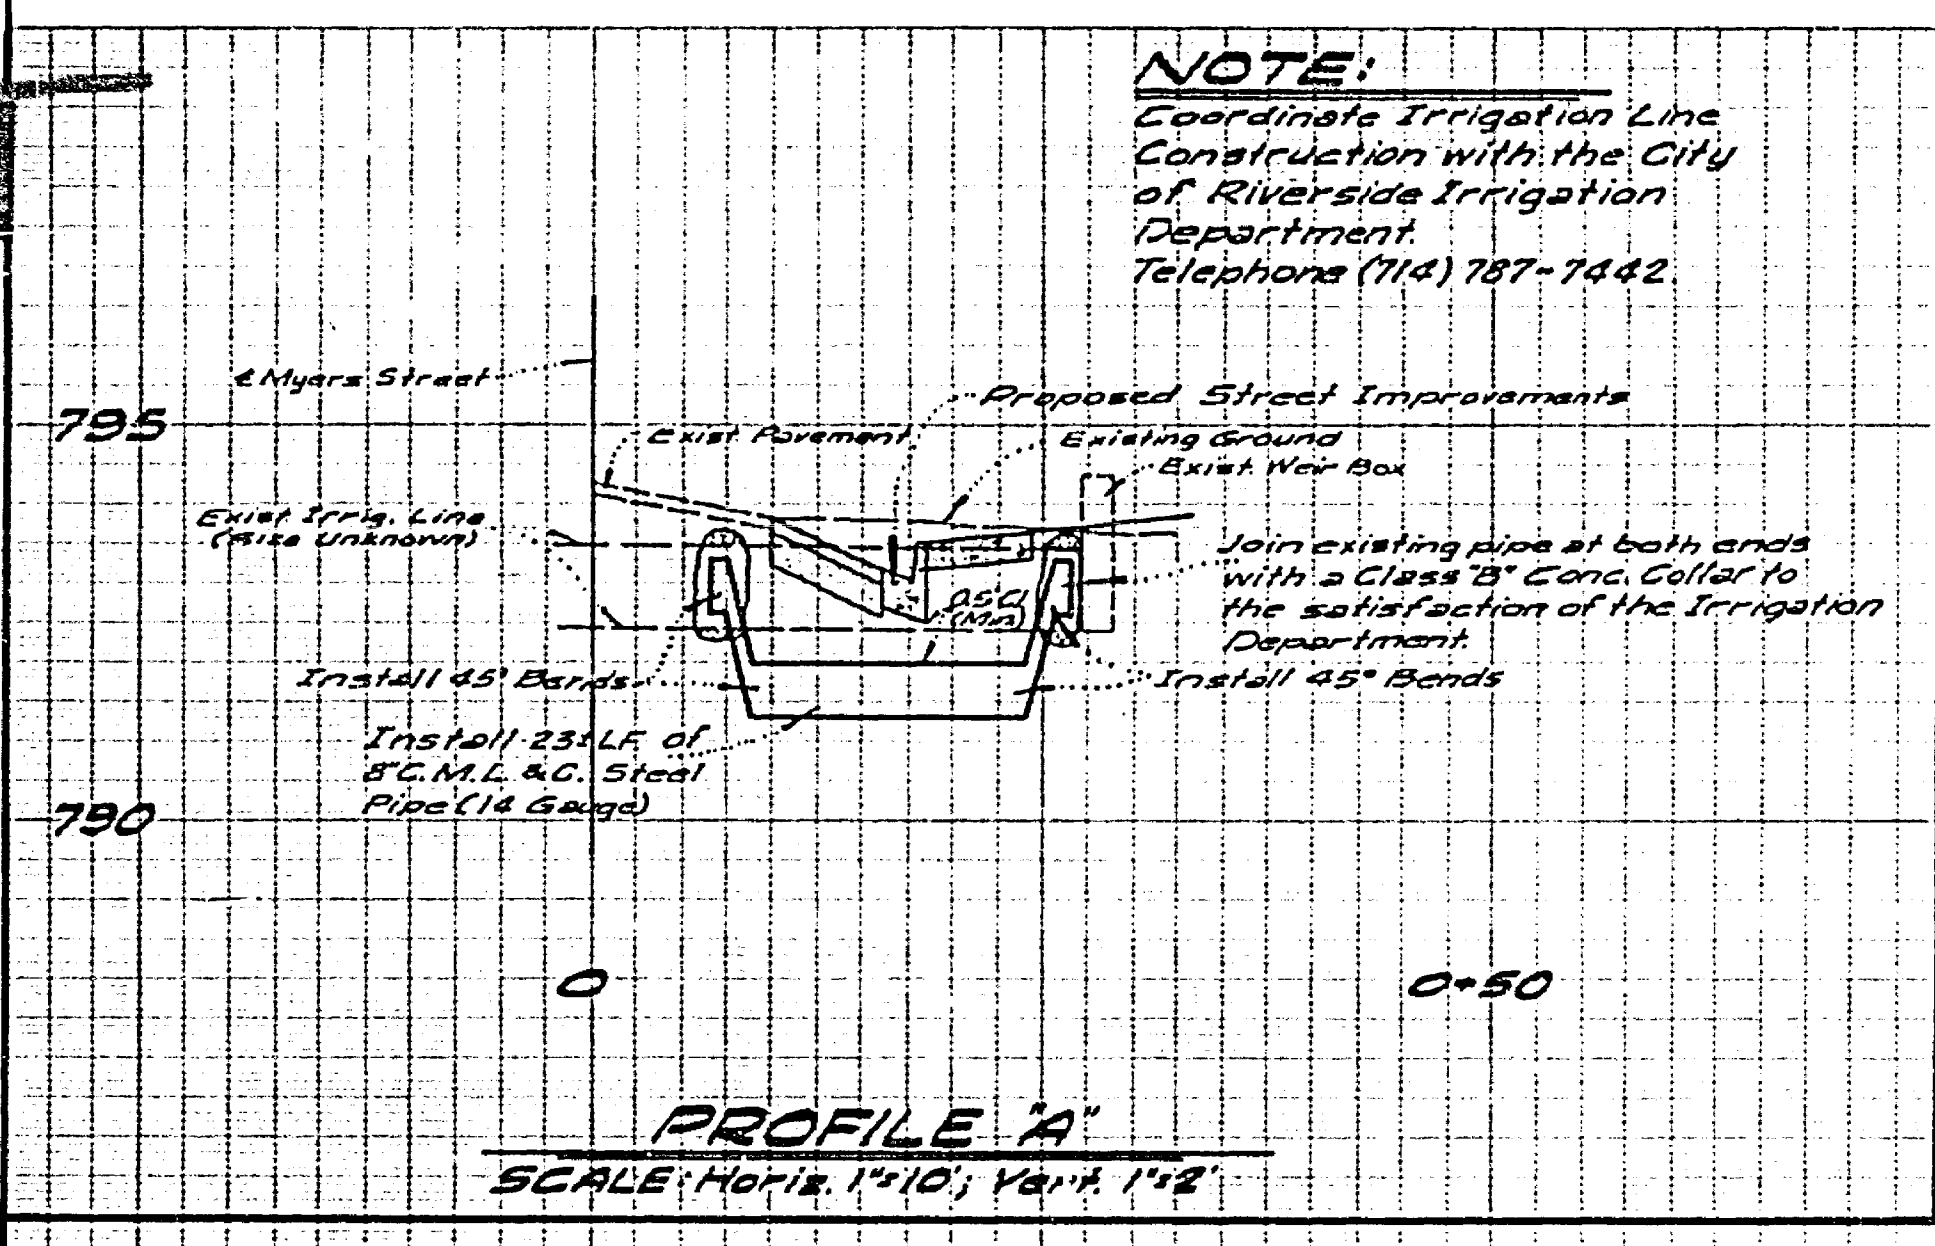 NOTE:
Coordinate Irrigation Line
Construction with the City
of Riverside Irrigation
Department.
Telephone (714) 787-7442
℄ Myers Street
Proposed Street Improvements
795
Exist. Pavement
Existing Ground
Exist. Weir Box
Exist. Irrig. Line
(Size Unknown)
Join existing pipe at both ends
with a Class "B" Conc. Collar to
the satisfaction of the Irrigation
Department.
0.5' Cl
(Min)
Install 45° Bends
Install 45° Bends
Install 23± LF of
8" C.M.L. & C. Steel
Pipe (14 Gauge)
790
0
0+50
PROFILE "A"
SCALE: Horiz. 1"=10'; Vert. 1"=2'